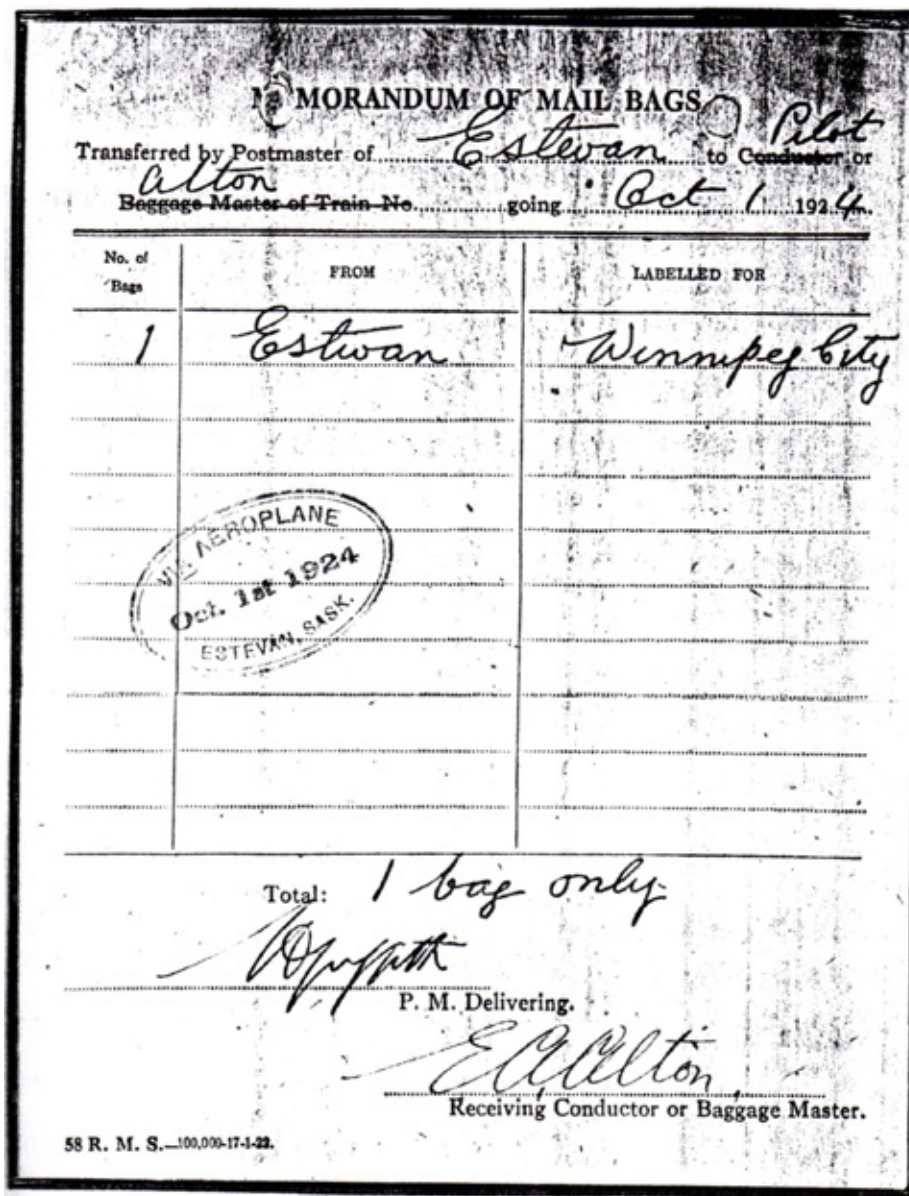 MEMORANDUM OF MAIL BAGS
Pilot
Transferred by Postmaster of Estevan to Conductor or
Alton
Baggage Master of Train No. going Oct 1 1924.
No. of Bags FROM LABELLED FOR
1 Estevan Winnipeg City
VIA AEROPLANE
Oct. 1st 1924
ESTEVAN, SASK.
Total: 1 bag only
P. M. Delivering.
E A Alton
Receiving Conductor or Baggage Master.
58 R. M. S.—100,000-17-1-22.